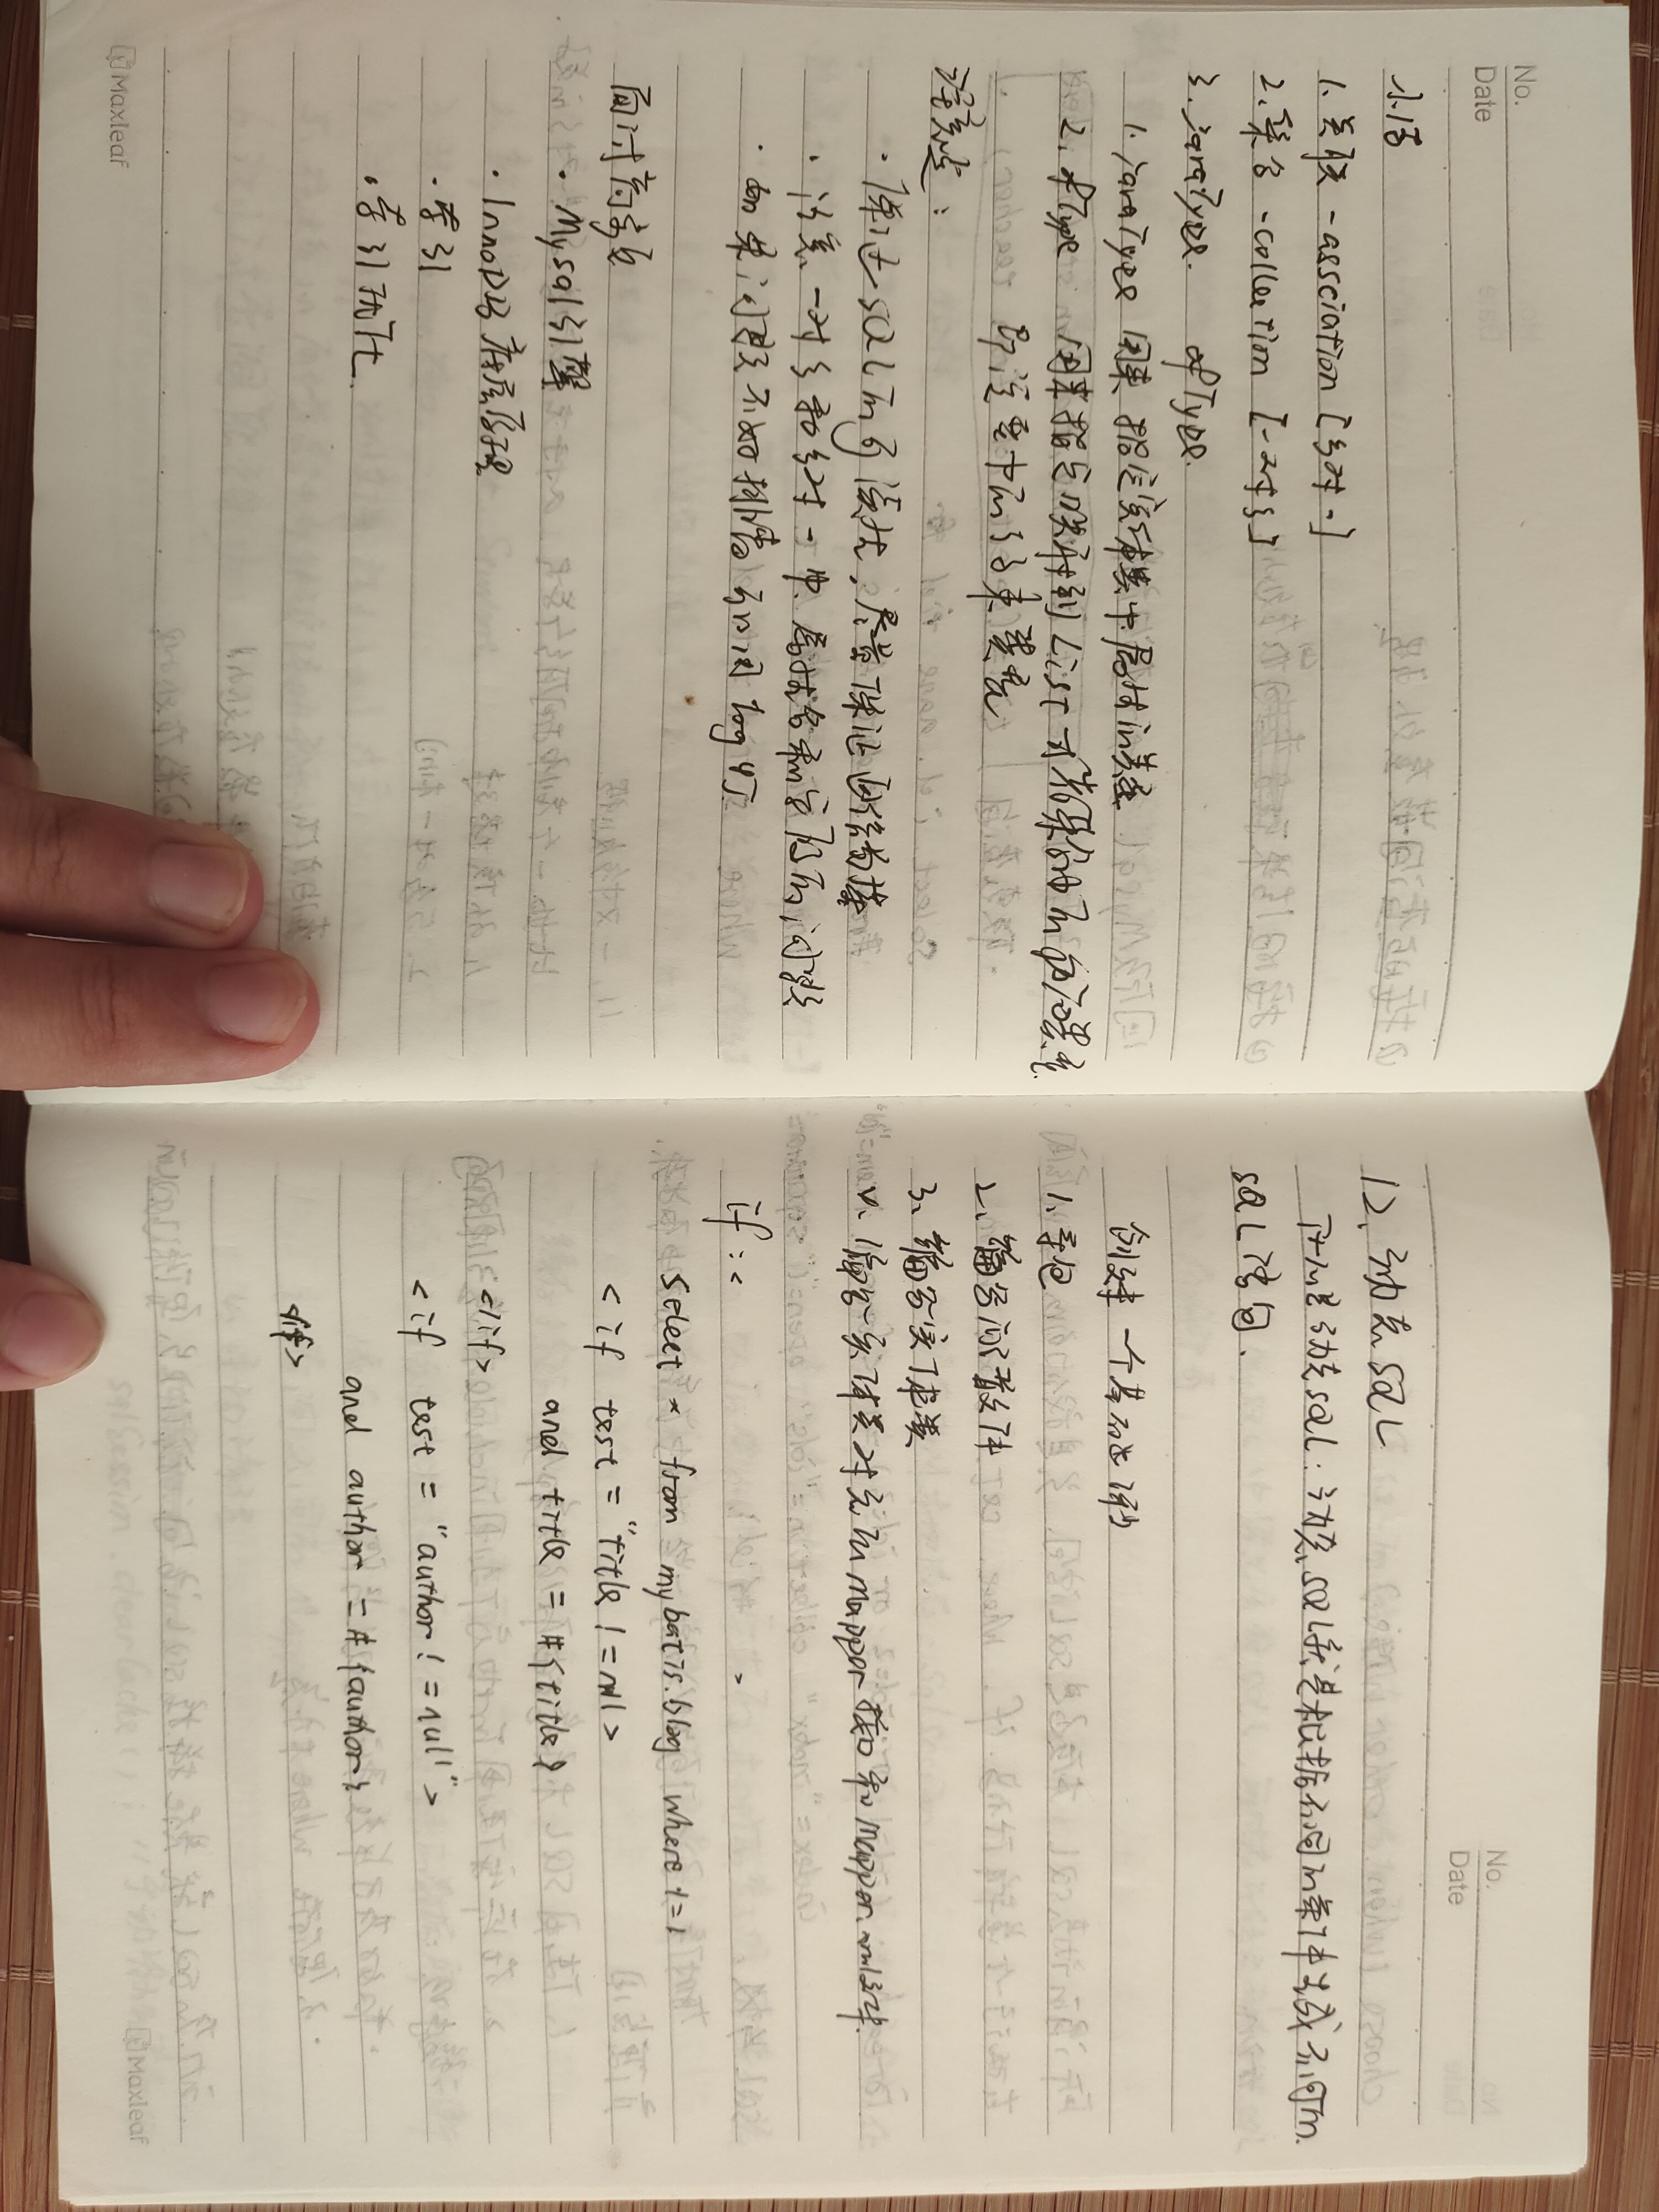 No.
Date
小结
1. 关联 - assciation [多对一]
2. 集合 - collection [一对多]
3. javaType. ofType.
1. javaType 用来指定实体类中属性的类型
2. ofType 用来指定映射到List或者集合中的泛型
即泛型中的约束类型
注意点：
· 保证SQL的可读性，尽量保证通俗易懂
· 注意一对多和多对一中，属性名和字段的问题
· 如果问题不好排查，可以用log4j
面试高频
· Mysql引擎
· InnoDB底层原理
· 索引
· 索引优化.
Maxleaf
No.
Date
12、动态SQL
什么是动态SQL：动态SQL就是根据不同的条件生成不同的
SQL语句.
创建一个基础工程
1、导包
2、编写配置文件
3、编写实体类
4、编写实体类对应的mapper接口和mapper.xml文件
if :<
>
select * from mybatis.blog where 1=1
<if test = "title != null>
and title = #{title}
</if>
<if test = "author != null">
and author = #{author}
</if>
Maxleaf